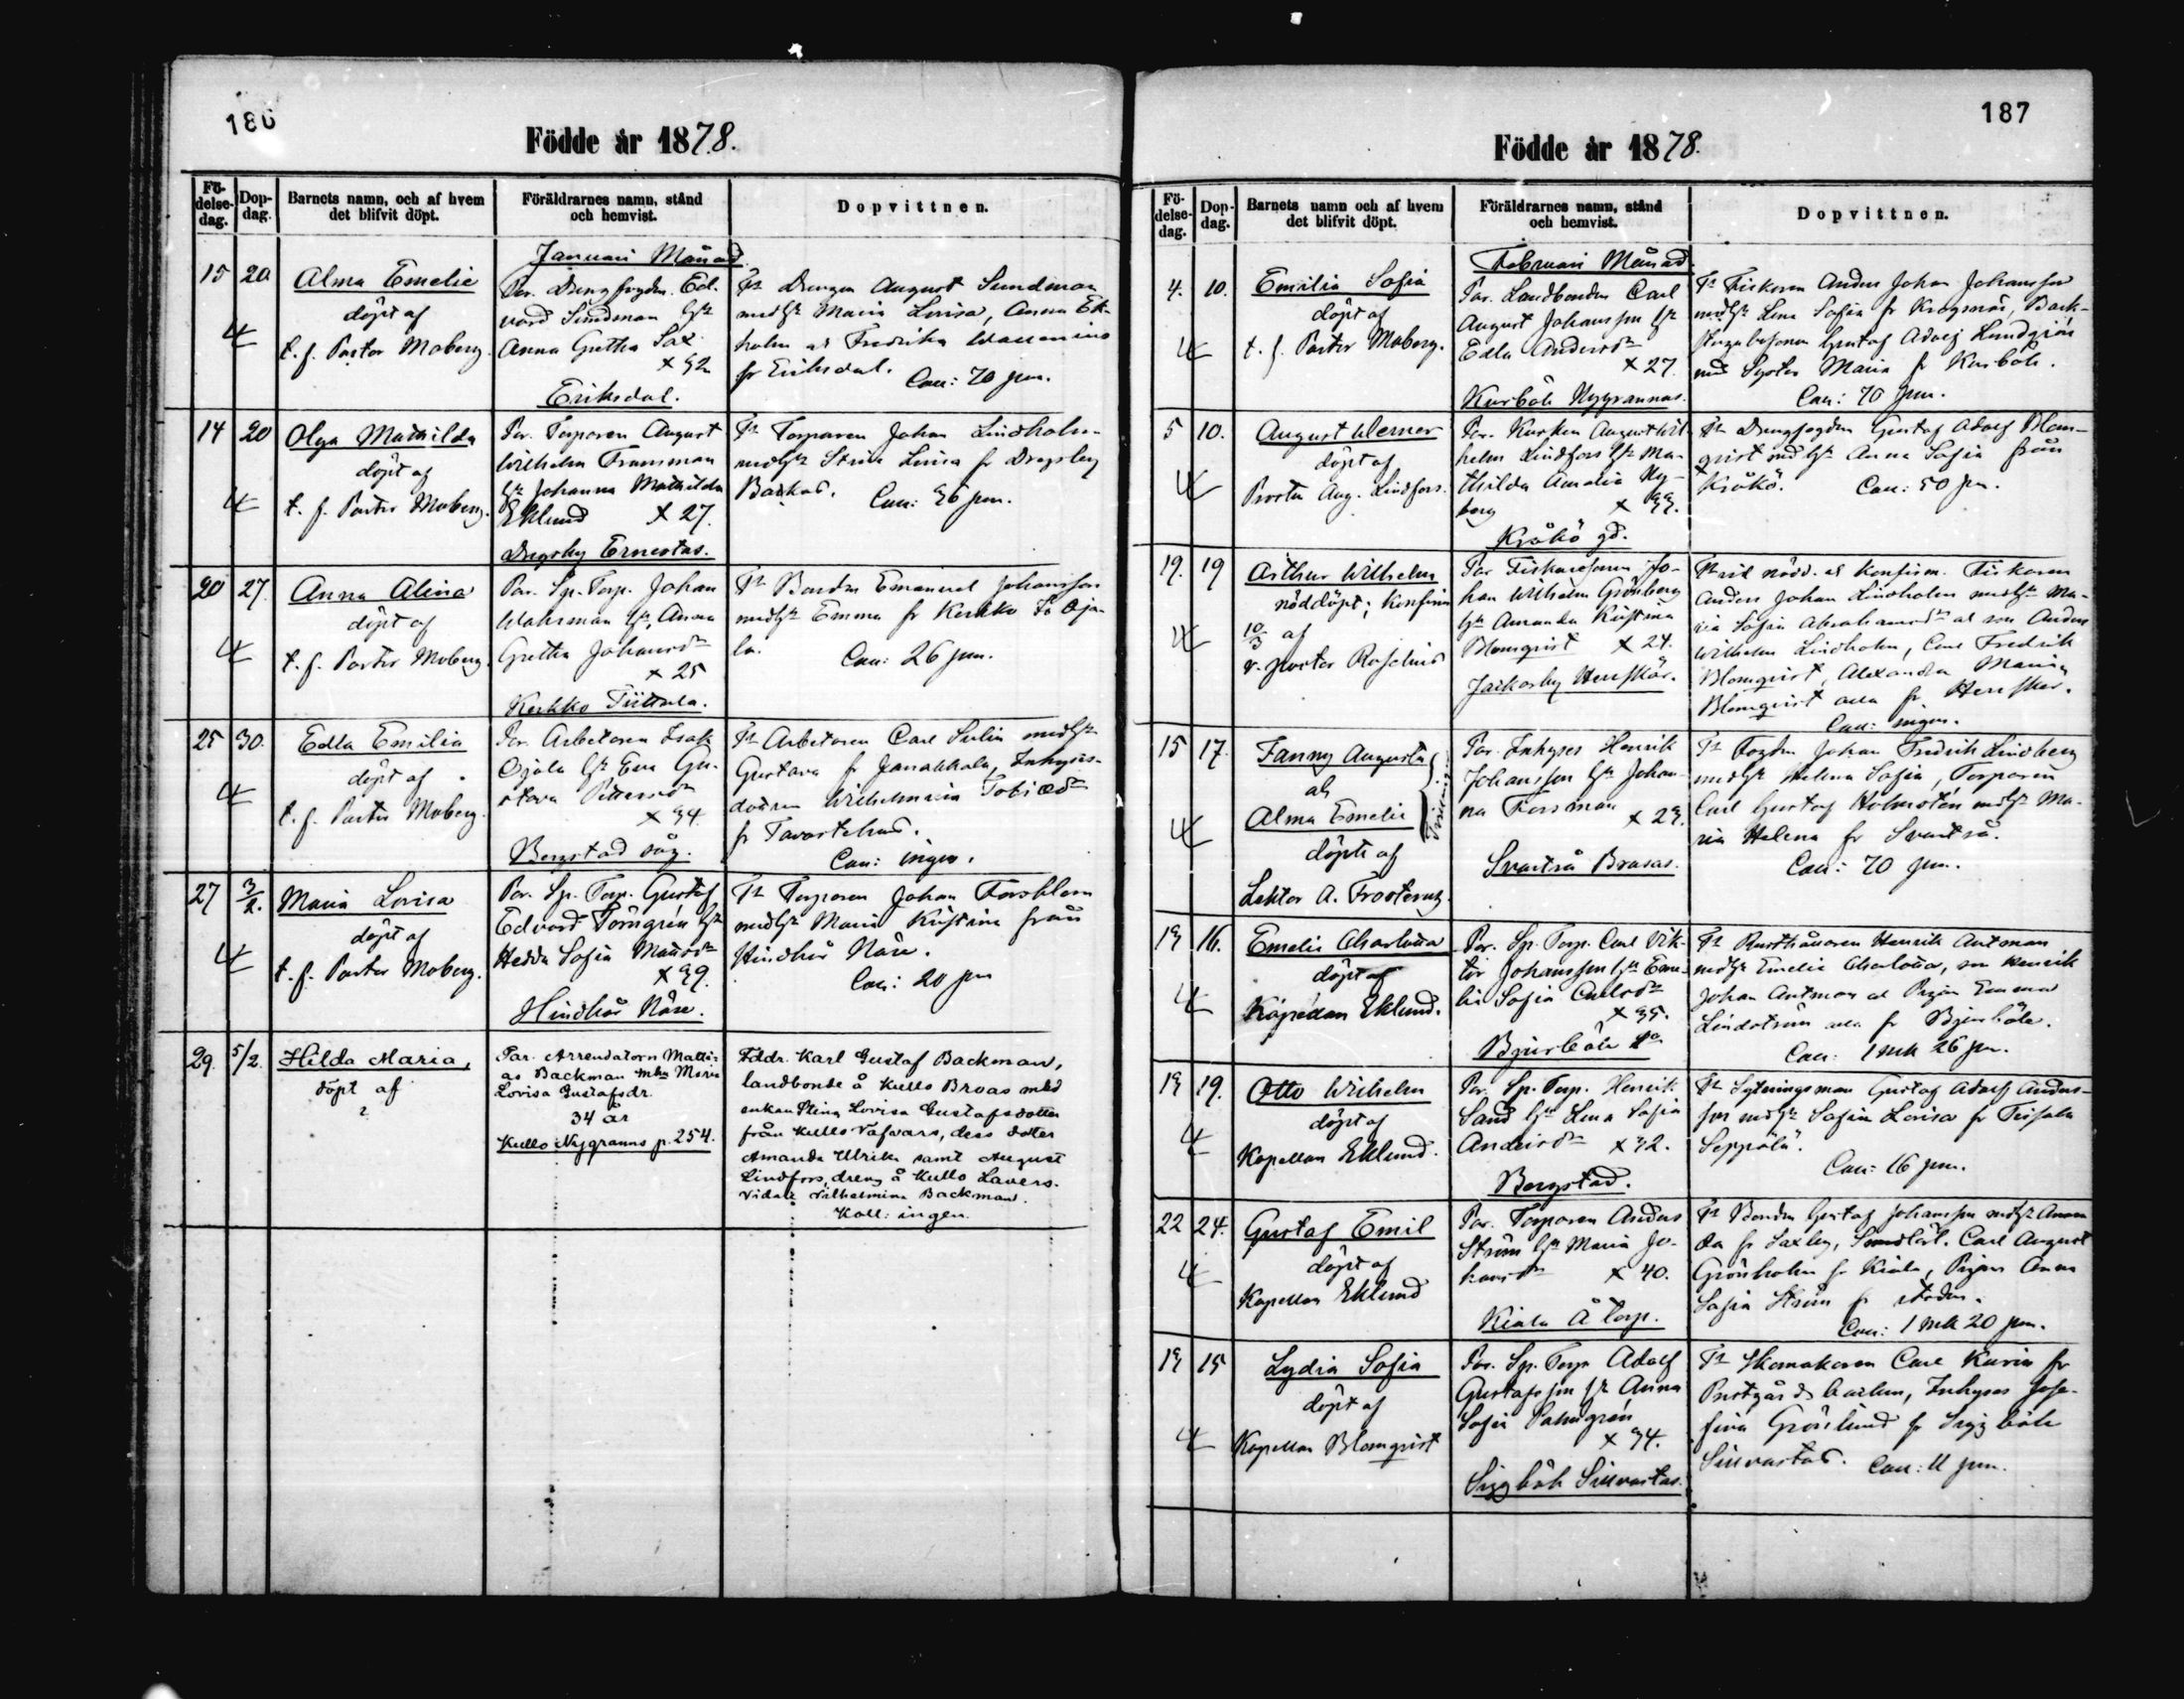 186
Födde år 1878.
Fö-
delse-
dag.
Dop-
dag.
Barnets namn, och af hvem
det blifvit döpt.
Föräldrarnes namn, stånd
och hemvist.
Dopvittnen.
Januari Månad
15 20
Alma Emelie
döpt af
t. f. Pastor Moberg.
Par. Drengfogden Ed-
vard Sundman
Anna Gretha Sax
Eriksdal.
Drengen August Sundman
Maria Lovisa, Anna Ek-
holm Fredrika
fr Eriksdal.
Coll: 70 pm.
14 20
Olga Mathilda
döpt af
t. f. Pastor Moberg.
Par. Torparen August
Wilhelm
Johanna Mathilda
Eklund x 27.
Drägsby Ernestas.
Torparen Johan Lindholm
Lovisa fr Drägsby
Backas. Coll: 36 pm.
20 27.
Anna Alina
döpt af
t. f. Pastor Moberg.
Par. Sp. Torp. Johan
Wahrman hu Anna
Gretha Johansdr
x 25
Kerkko Tiittala.
Bonden Emanuel Johansson
Emma fr Kerkko
la.
Coll: 26 pm.
25 30.
Edla Emilia
döpt af
t. f. Pastor Moberg.
Par. Arbetaren Isak
Ojala Eva Gu-
stava
x 34.
Bergstad såg.
Arbetaren Carl
Gustava fr Janakkala, Inhyses-
Wilhelmina
fr Tavastehus.
Coll: ingen.
27 3/2.
Maria Lovisa
döpt af
t. f. Pastor Moberg.
Par. Sp. Torp. Gustaf
Edvard Törngrén
Hedda Sofia
x 39.
Hindhår Näse.
Torparen Johan Forsblom
Maria Kristina från
Hindhår Näse.
Coll: 20 pm
29. 5/2.
Hilda Maria,
döpt af
?
Par. Arrendatorn Matti-
as Backman mhu Maria
Lovisa Gustafsdr.
34 år
Kullo Nygranns p. 254.
Fddr. Karl Gustaf Backman,
landbonde å Kullo Broas med
enkan Stina Lovisa Gustafsdotter
från Kullo Tafvars, dess dotter
Amanda Ulrika samt August
Lindfors, dreng å Kullo Lavers.
Vidare Vilhelmina Backman.
Koll: ingen.
187
Födde år 1878.
Fö-
delse-
dag.
Dop-
dag.
Barnets namn och af hvem
det blifvit döpt.
Föräldrarnes namn, stånd
och hemvist.
Dopvittnen.
Februari Månad.
4. 10.
Emilia Sofia
döpt af
t. f. Pastor Moberg.
Par. Landbonden Carl
August Johansson
Edla Andersdr
x 27
Kurböle Nygrannas.
Fiskaren Anders Johan Johansson
Lena Sofia fr Krogsnäs, Back-
Gustaf Adolf
med Syster Maria fr Kurböle.
Coll: 70 pm.
5 10.
August Werner
döpt af
Pastor Aug. Lindfors.
Par. Kusken August Wil-
helm Lindfors Ma-
thilda Amalia Ny-
berg x 33.
Kråkö gd.
Drengfogden Gustaf Adolf Blom-
qvist Anna Sofia från
Kråkö. Coll: 50 pm.
19. 19
Arthur Wilhelm
nöddöpt; Konfirm
10/3 af
v. pastor Roschius
Par Fiskaresonen Jo-
han Wilhelm Grönberg
Amanda Kristina
Blomqvist x 24.
Jackarby Herrskär.
vid nödd. Konfirm. Fiskaren
Anders Johan Lindholm Ma-
ria Sofia Abrahamsdr son Anders
Wilhelm Lindholm, Carl Fredrik
Blomqvist, Alexandra Maria
Blomqvist alla fr Herrskär.
Coll: ingen.
15 17.
Fanny Augusta
och
Alma Emelie
döpte af
Lektor A. Frosterus.
Par. Inhyses Henrik
Johansson Johan-
na Forsman x 23.
Svartså Brasas.
Johan Fredrik Lindberg
Helena Sofia, Torparen
Carl Gustaf Holmstén Ma-
ria Helena fr Svartså.
Coll: 70 pm.
13 16.
Emelie Charlotta
döpt af
Kapellan Eklund.
Par. Sp. Torp. Carl Vik-
tor Johansson Eme-
lie Sofia Carlsdr
x 35.
Bjurböle
Rusthållaren Henrik Antman
Emelie Charlotta, son Henrik
Johan Antman Pigan Emma
Lindström alla fr Bjurböle.
Coll: 1 mk 26 pm.
13 19.
Otto Wilhelm
döpt af
Kapellan Eklund.
Par. Sp. Torp. Henrik
Sand Lena Sofia
Andersdr x 32.
Bergstad.
Sytningsman Gustaf Adolf Anders-
son Sofia Lovisa fr
Seppälä.
Coll: 16 pm.
22 24.
Gustaf Emil
döpt af
Kapellan Eklund
Par. Torparen Anders
Ström Maria Jo-
hansdr x 40.
Kiala Å Torp.
Bonden Gustaf Johansson Aman-
da fr Saxby, Carl August
Grönholm fr Kiala, Pigan Anna
Sofia Ström fr staden.
Coll: 1 mk 20 pm.
13 15
Lydia Sofia
döpt af
Kapellan Blomqvist
Par. Sp. Torp Adolf
Gustafsson Anna
Sofia Palmgrén
x 34.
Siggböle Sillvastas.
Skomakaren Carl fr
Prestgårds backen, Inhyses Jose-
fina Grönlund fr Siggböle
Sillvastas. Coll: 11 pm.